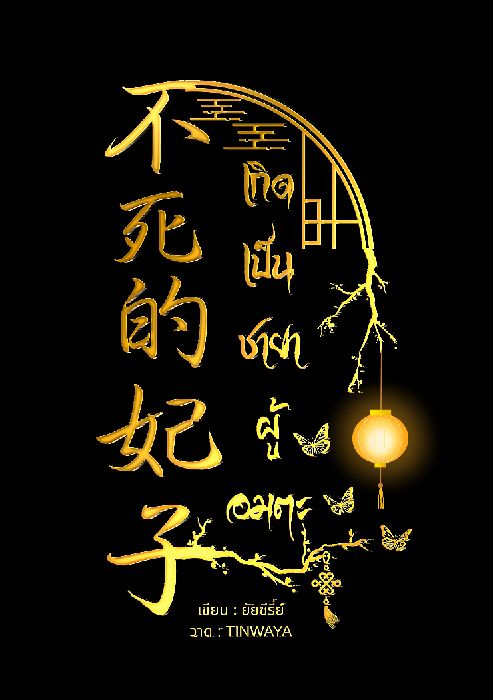 不死的妃子
เกิด
เป็น
ชายา
ผู้
อมตะ
เขียน : ยัยซีรี่ย์
วาด : TINWAYA